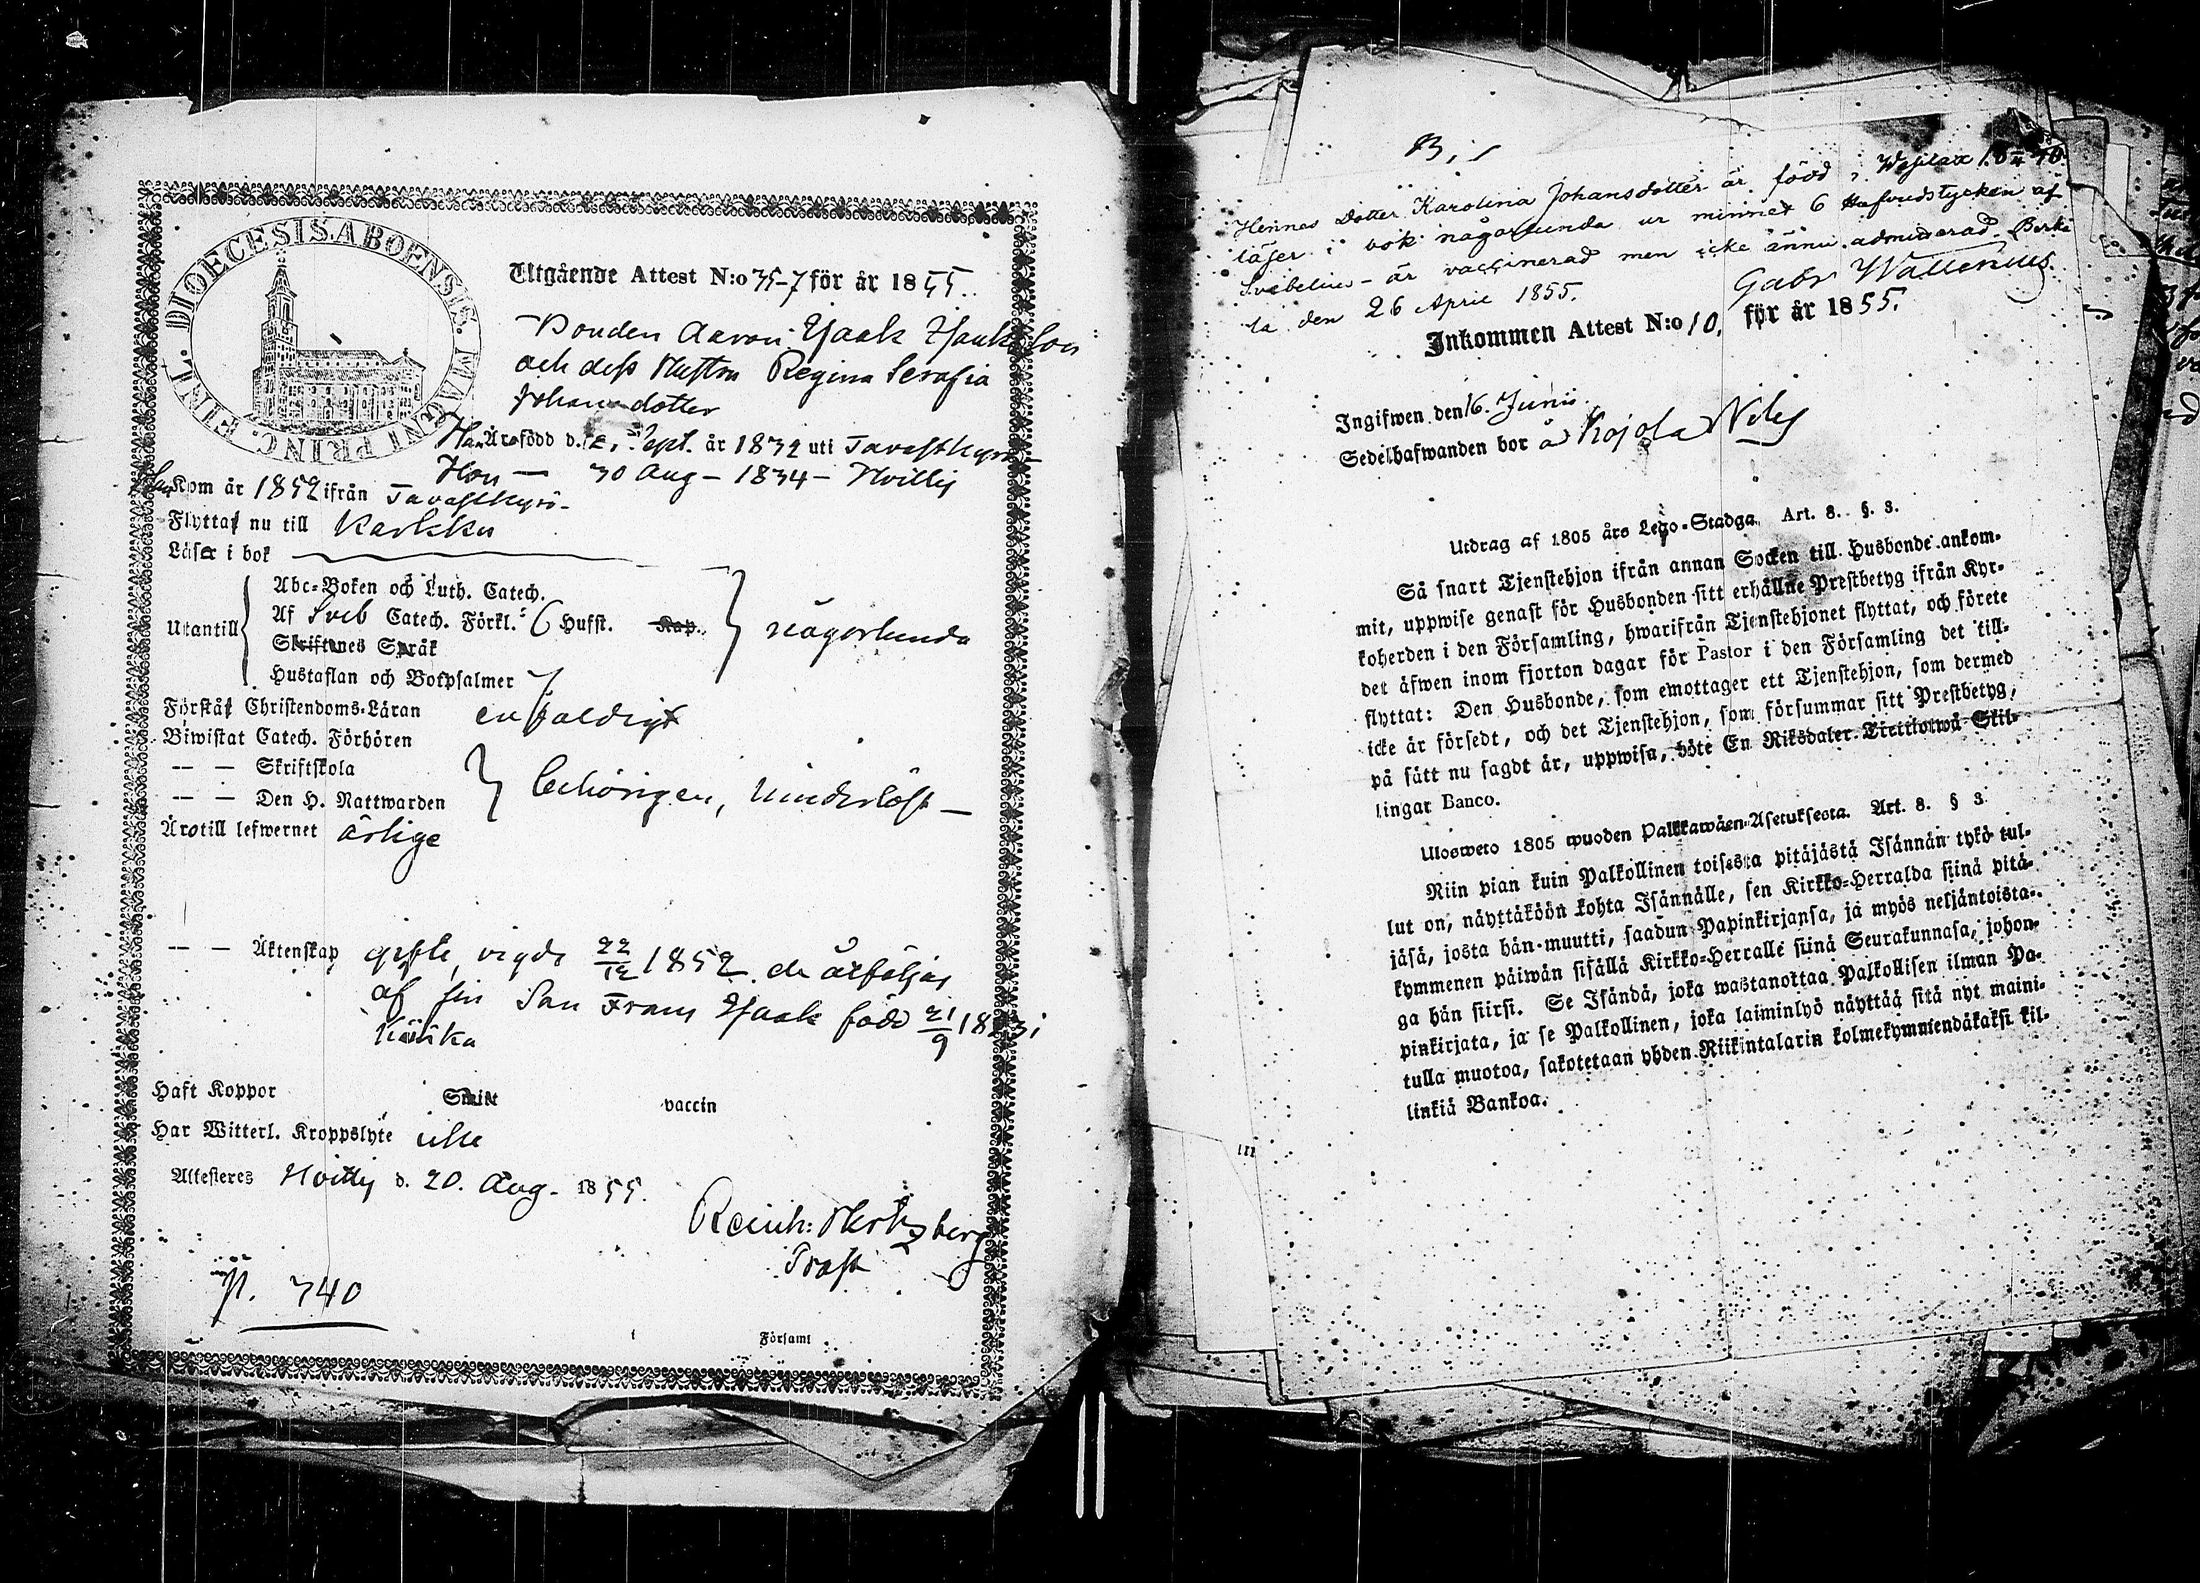 DIOECESIS ABOENSIS. MAGNI PRINC. FINL.
Utgående Attest N:o 35-7 för år 1855.
Bonden Aaron Isaak Isaaksson
och dess Hustru Regina Serafia
Johansdotter
Han Äro född d. 2. Sept. år 1832 uti Tavastkyro
Hon — 30 Aug – 1834 – Hvittis
Kom år 1852 ifrån Tavastkyrö.
Flyttar nu till Karkku
Läser i bok
Abc-Boken och Luth. Catech.
Utantill Af Sveb Catech. Förkl. 6 Hufst. Kap. någorlunda
Skriftenes Språk
Hustaflan och Botpsalmer
Förstår Christendoms-Läran enfaldigt
Biwistat Catech. Förhören
— — Skriftskola
— — Den H. Nattwarden behörigen,
Äro till lefwernet ärlige
— — Äktenskap gifte, vigde 22/12 1852. de åtföljas
af sin Son Frans Isaak född 21/9 1853 i
Haft Koppor vaccin
Har Witterl. Kroppslyte icke
Attesteres Hvittis d. 20. Aug. 1855.
Reinh: Hertzberg
Prost
p. 740
Församl
B. 1
Hennes Dotter Karolina Johansdotter är född i Wesilax
läser i bok någorlunda ur minnet 6 Hufvudstycken af
Svebelius – är vaccinerad men icke ännu admitterad. Birka
la den 26 April 1855. Gabr Wallenius.
Inkommen Attest N:o 10. för år 1855.
Ingifwen den 16. Junii.
Sedelhafwanden bor å Kojola
Utdrag af 1805 års Lego-Stadga Art. 8. §. 3.
Så snart Tjenstehjon ifrån annan Socken till Husbonde ankom-
mit, uppwise genast för Husbonden sitt erhållne Prestbetyg ifrån Kyr-
koherden i den Församling, hwarifrån Tjenstehjonet flyttat, och förete
det äfwen inom fjorton dagar för Pastor i den Församling det till-
flyttat: Den Husbonde, som emottager ett Tjenstehjon, som dermed
icke är försedt, och det Tjenstehjon, som försummar sitt Prestbetyg,
på sätt nu sagdt är, uppwisa, böte En Riksdaler Trettiotwå Skil-
lingar Banco.
Ulosweto 1805 wuoden Palkkawäen-Asetuksesta. Art. 8. § 3
Niin pian kuin Palkollinen toisesta pitäjästä Isännän tykö tul-
lut on, näyttäköön kohta Isännälle, sen Kirkko-Herralda siinä pitä-
jäsä, josta hän muutti, saadun Papinkirjansa, ja myös neljäntoista-
kymmenen päiwän sisällä Kirkko-Herralle siinä Seurakunnasa, johon-
ga hän siirsi. Se Isändä, joka wastanottaa Palkollisen ilman Pa-
pinkirjata, ja se Palkollinen, joka laiminlyö näyttää sitä nyt maini-
tulla muotoa, sakotetaan yhden Riikintalarin kolmekymmendäkaksi kil-
linkiä Bankoa.